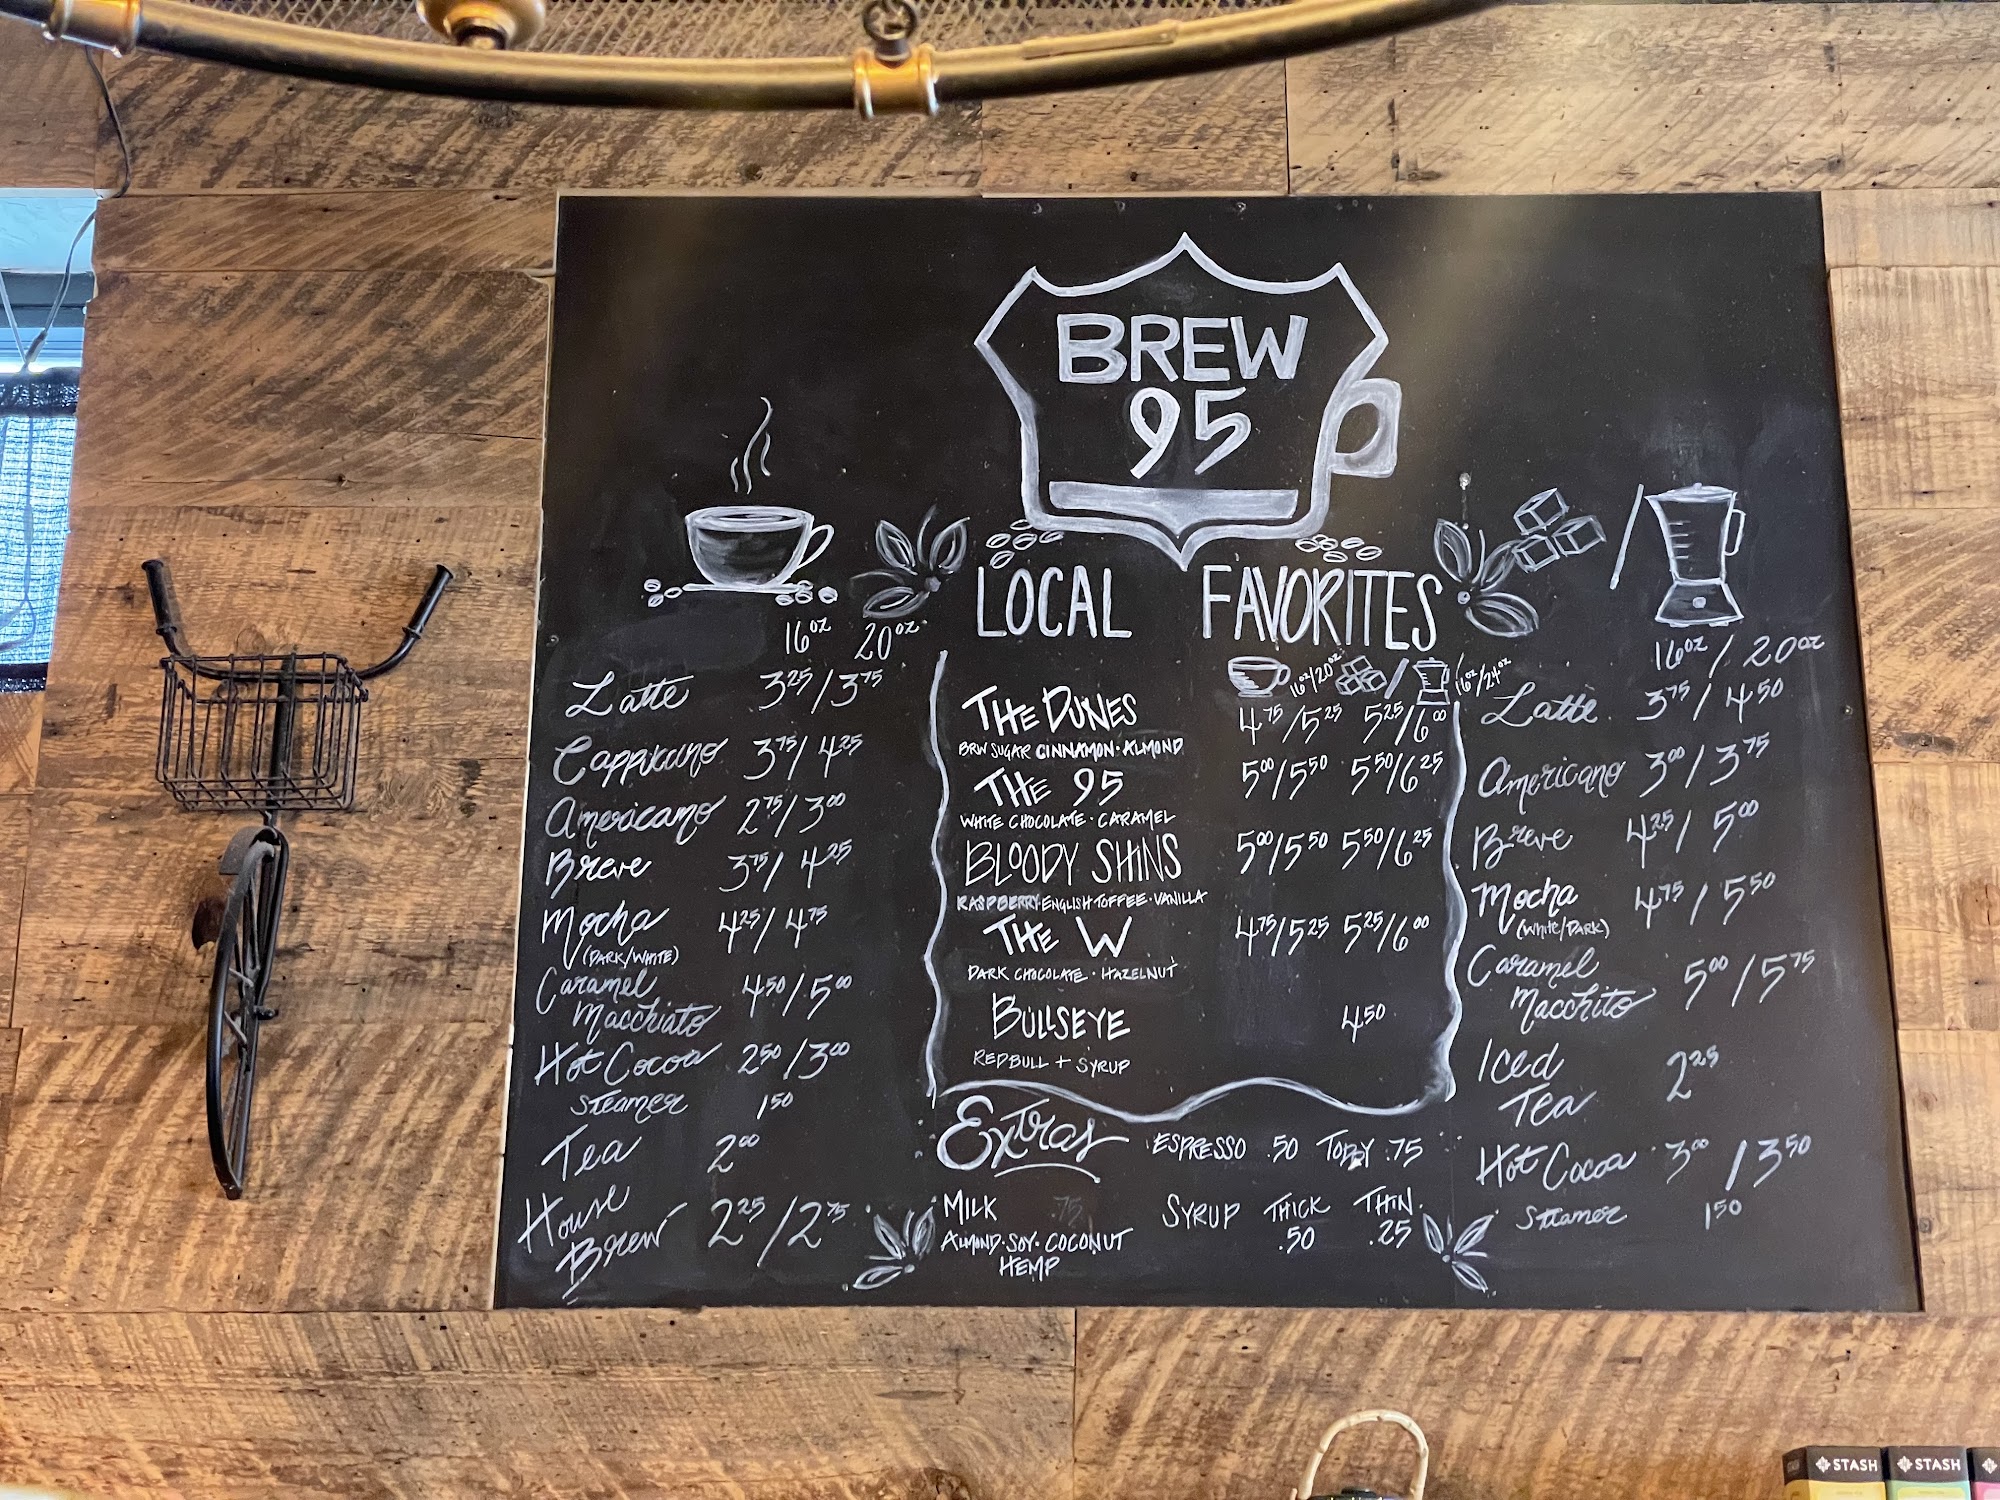 BREW
95
LOCAL FAVORITES
16oz 20oz
Latte 3.25/3.75
Cappuccino 3.75/4.25
Americano 2.75/3.00
Breve 3.75/4.25
Mocha 4.25/4.75
(DARK/WHITE)
Caramel
Macchiato 4.50/5.00
Hot Cocoa 2.50/3.00
Steamer 1.50
Tea 2.00
House
Brew 2.25/2.75
16oz/20oz 16oz/24oz
THE DUNES 4.75/5.25 5.25/6.00
BRW SUGAR CINNAMON · ALMOND
THE 95 5.00/5.50 5.50/6.25
WHITE CHOCOLATE · CARAMEL
BLOODY SHINS 5.00/5.50 5.50/6.25
RASPBERRY · ENGLISH TOFFEE · VANILLA
THE W 4.75/5.25 5.25/6.00
DARK CHOCOLATE · HAZELNUT
BULLSEYE 4.50
REDBULL + SYRUP
Extras ESPRESSO .50 TODDY .75
MILK .75 SYRUP THICK THIN
.50 .25
ALMOND · SOY · COCONUT
HEMP
16oz / 20oz
Latte 3.75/4.50
Americano 3.00/3.75
Breve 4.25/5.00
Mocha 4.75/5.50
(WHITE/DARK)
Caramel
Macchito 5.00/5.75
Iced
Tea 2.25
Hot Cocoa 3.00/3.50
Steamer 1.50
STASH STASH